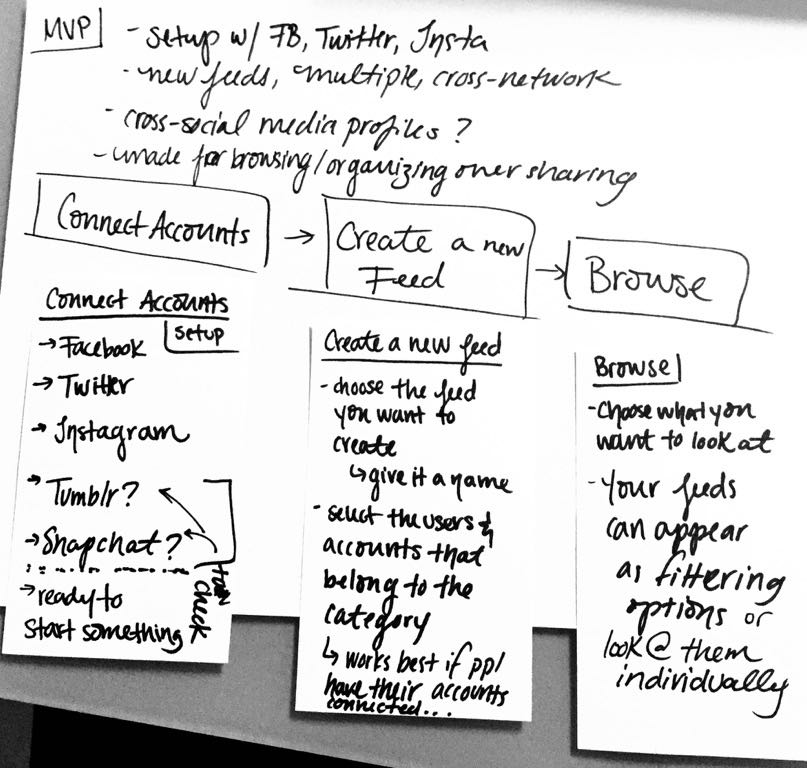 MVP
- setup w/ FB, Twitter, Insta
- new feeds, multiple, cross-network
- cross-social media profiles ?
- made for browsing/organizing over sharing
Connect Accounts
→
Create a new
Feed
→
Browse
Connect Accounts
setup
→ Facebook
→ Twitter
→ Instagram
→ Tumblr?
→ Snapchat?
check
→ ready to
start something
Create a new feed
- choose the feed
you want to
create
↳ give it a name
- select the users &
accounts that
belong to the
category
↳ works best if ppl
have their accounts
connected...
Browse
- Choose what you
want to look at
- Your feeds
can appear
as filtering
options or
look @ them
individually